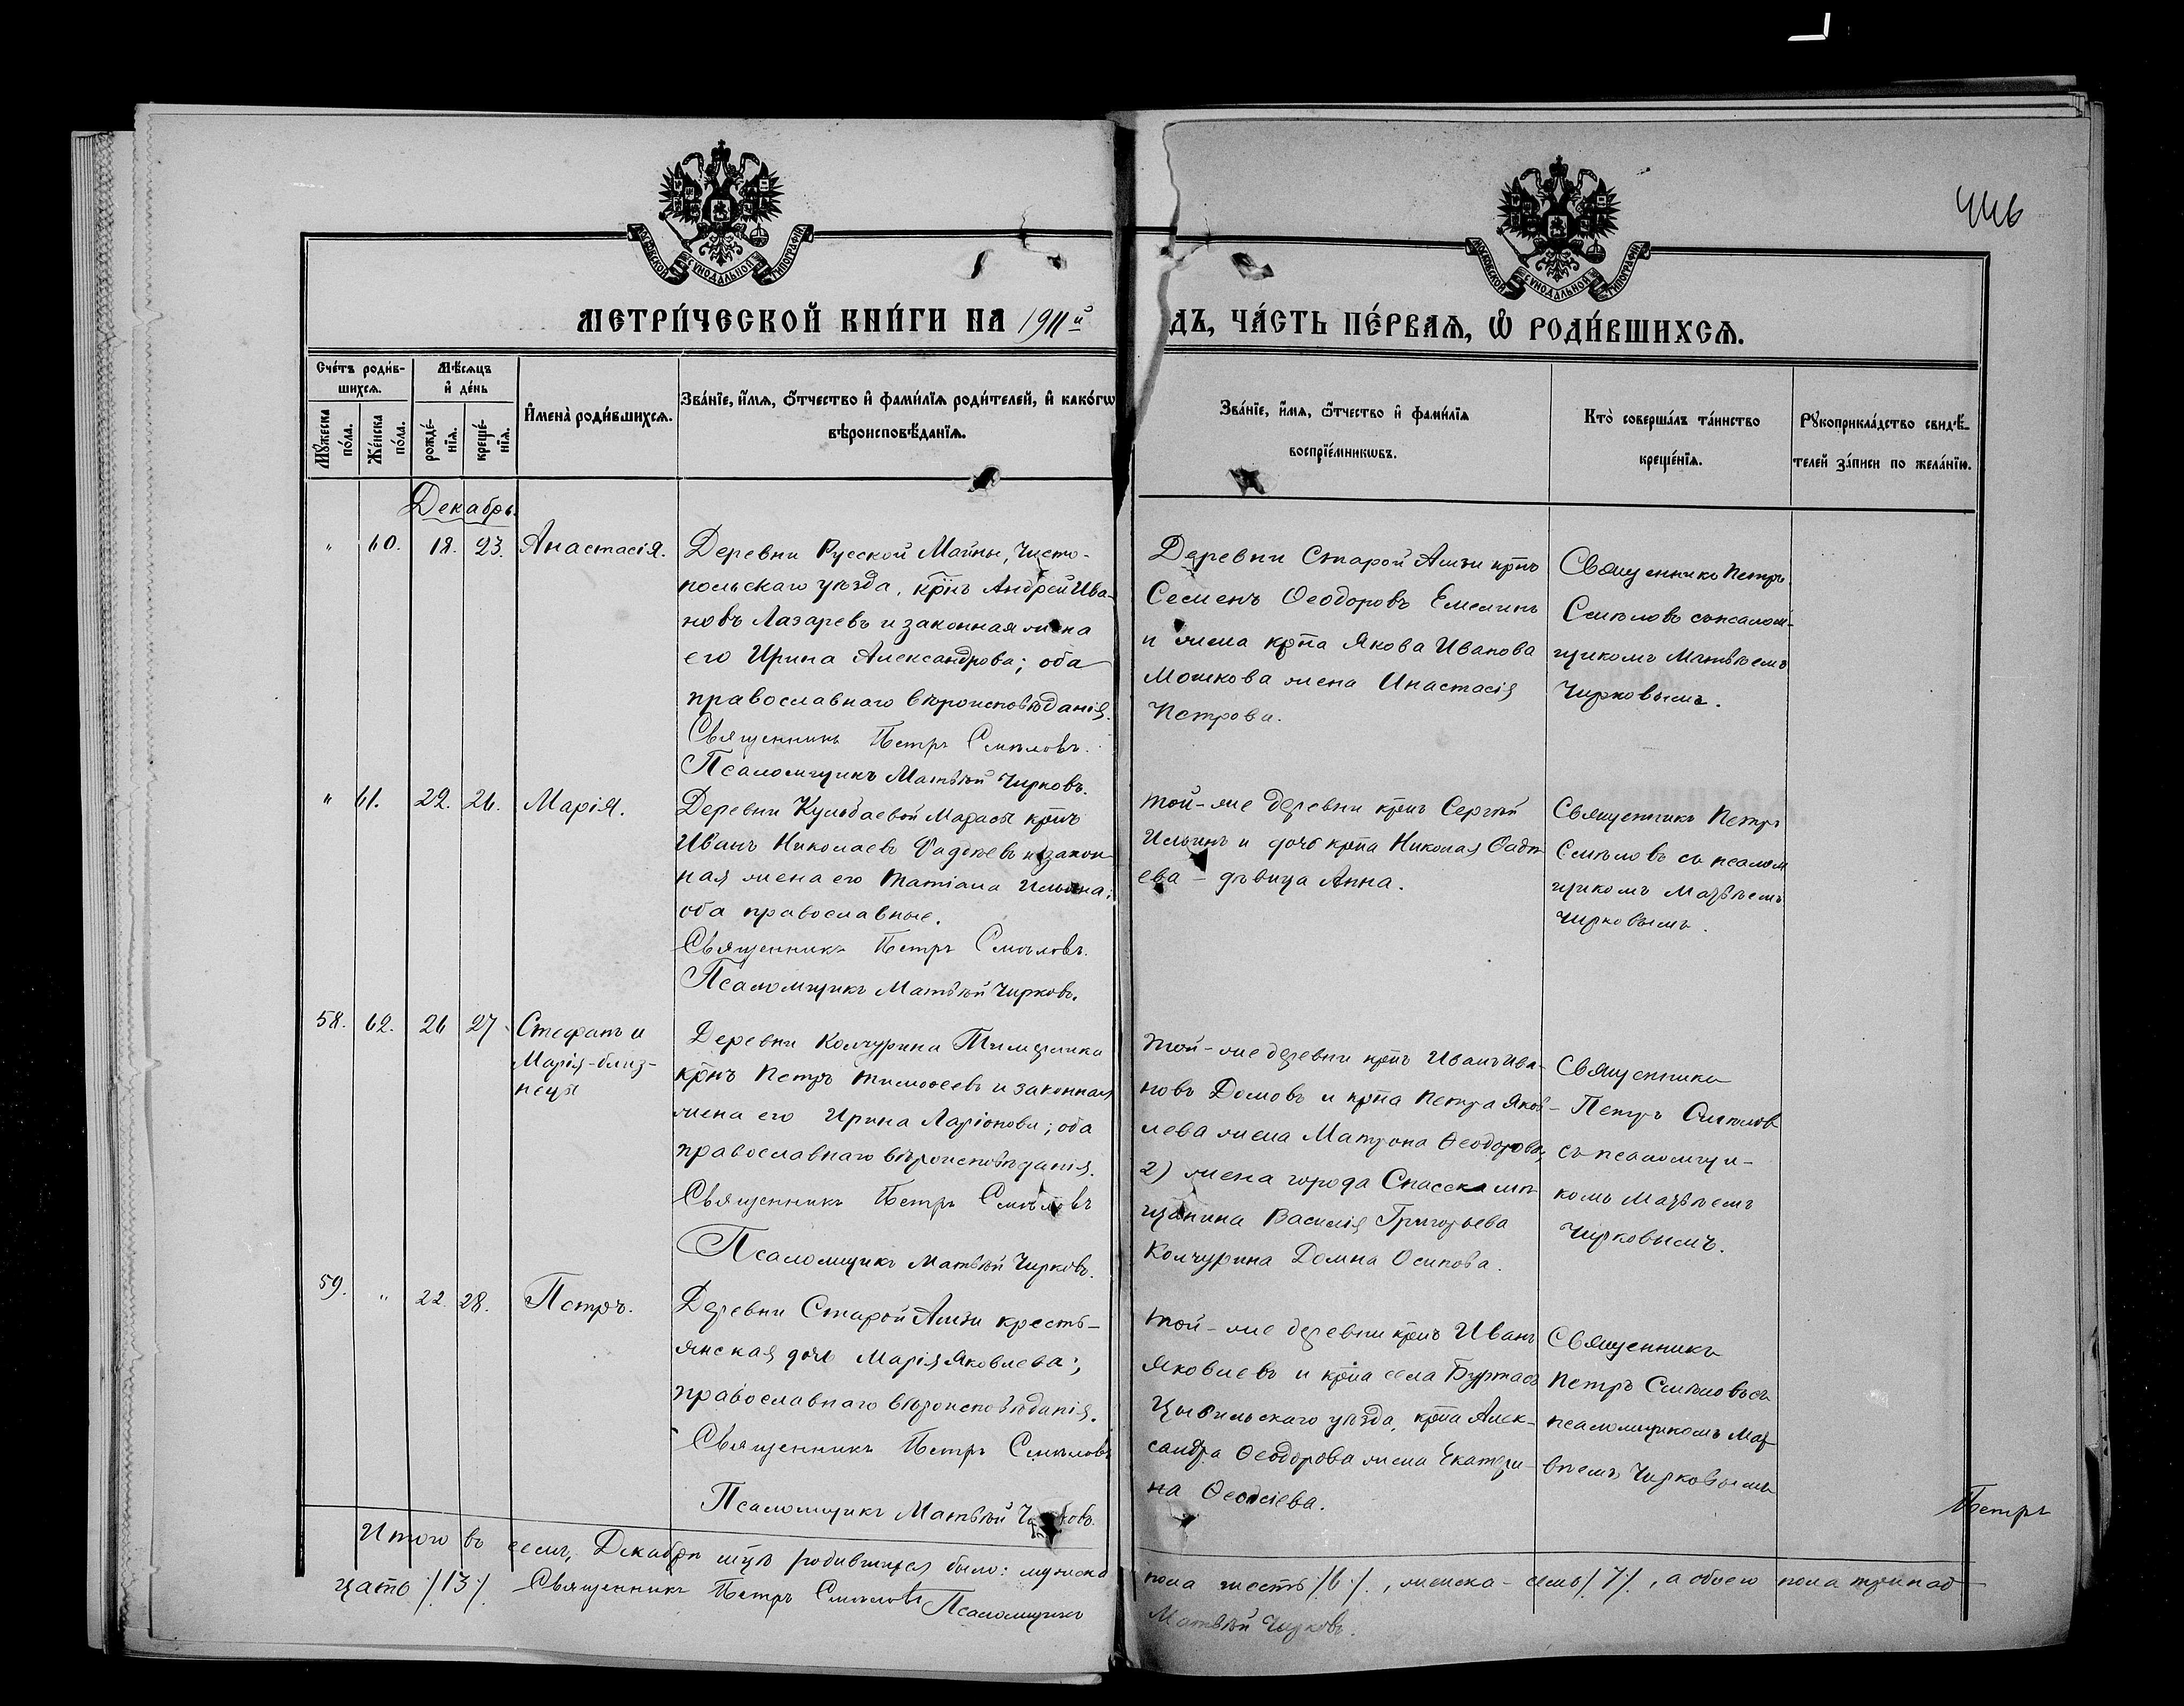 446
МОСКОВСКОЙ СѴНОДАЛЬНОЙ ТИПОГРАФІИ
МОСКОВСКОЙ СѴНОДАЛЬНОЙ ТИПОГРАФІИ
МЕТРИ́ЧЕСКОЙ КНИ́ГИ НА 1911й
ДЪ, ЧА́СТЬ ПЕ́РВАѦ, Ѡ РОДИ́ВШИХСѦ.
Сче́тъ роди́в-
шихсѧ.
Мѣ́сѧцъ
и҆ де́нь
Мꙋ́жеска
по́ла.
Же́нска
по́ла.
рожде́-
нїѧ.
креще́-
нїѧ.
И҆мена̀ роди́вшихсѧ.
Зва́нїе, и҆́мѧ, ѻ҆́тчество и҆ фами́лїѧ роди́телей, и҆ како́гѡ
вѣроисповѣ́данїѧ.
Зва́нїе, и҆́мѧ, ѻ҆́тчество и҆ фами́лїѧ
воспрїе́мникѡвъ.
Кто̀ соверша́лъ та́инство
креще́нїѧ.
Рꙋкоприкла́дство свидѣ́-
телей за́писи по жела́нїю.
Декабрь.
" 60. 18. 23. Анастасія.
Деревни Русской Майны, Чисто-
польскаго уѣзда, крнъ Андрей Ива-
новъ Лазаревъ и законная жена
его Ирина Александрова; оба
православнаго вѣроисповѣданія.
Священникъ Петръ Смѣловъ.
Псаломщикъ Матвѣй Чирковъ.
Деревни Старой Амзи крнъ
Семенъ Ѳеодоровъ Емелинъ
и жена крна Якова Иванова
Мошкова жена Анастасія
Петрова.
Священникъ Петръ
Смѣловъ съ псалом-
щикомъ Матвѣемъ
Чирковымъ.
" 61. 22. 26. Марія.
Деревни Кульбаевой Марасы крнъ
Иванъ Николаевъ Фадѣевъ и закон-
ная жена его Татіана Ильина;
оба православные.
Священникъ Петръ Смѣловъ.
Псаломщикъ Матвѣй Чирковъ.
Той-же деревни крнъ Сергѣй
Ильинъ и дочь крна Николая Фадѣ-
ева - дѣвица Анна.
Священникъ Петръ
Смѣловъ съ псалом
щикомъ Матвѣемъ
Чирковымъ.
58. 62. 26 27. Стефанъ и
Марія-близ-
нецы
Деревни Колчурина Тимерлика
крнъ Петръ Тимоѳеевъ и законная
жена его Ирина Ларіонова; оба
православнаго вѣроисповѣданія.
Священникъ Петръ Смѣловъ
Псаломщикъ Матвѣй Чирковъ.
Той-же деревни крнъ Иванъ Ива-
новъ Домовъ и крна Петра Яков-
лева жена Матрона Ѳеодорова,
2) жена города Спасска мѣ-
щанина Василія Григорьева
Колчурина Домна Осипова.
Священникъ
Петръ Смѣлов
съ псаломщи-
комъ Матвѣемъ
Чирковымъ.
59. " 22 28. Петръ.
Деревни Старой Амзи кресть-
янская дочь Марія Яковлева;
православнаго вѣроисповѣданія.
Священникъ Петръ Смѣловъ
Псаломщикъ Матвѣй Чирковъ.
Той-же деревни крнъ Иванъ
Яковлевъ и крна села Буртасъ
Цывильскаго уѣзда, крна Алек-
сандра Ѳеодорова жена Екатери-
на Ѳеодсіева.
Священникъ
Петръ Смѣловъ съ
псаломщикомъ Мат
вѣемъ Чирковымъ
Петръ
Итого въ семъ, Декабрѣ м-цѣ родившихся было: мужска пола шесть /6/., женска - семь /7/., а обоего пола тринад-
цать /.13./. Священникъ Петръ Смѣловъ Псаломщикъ Матвѣй Чирковъ.